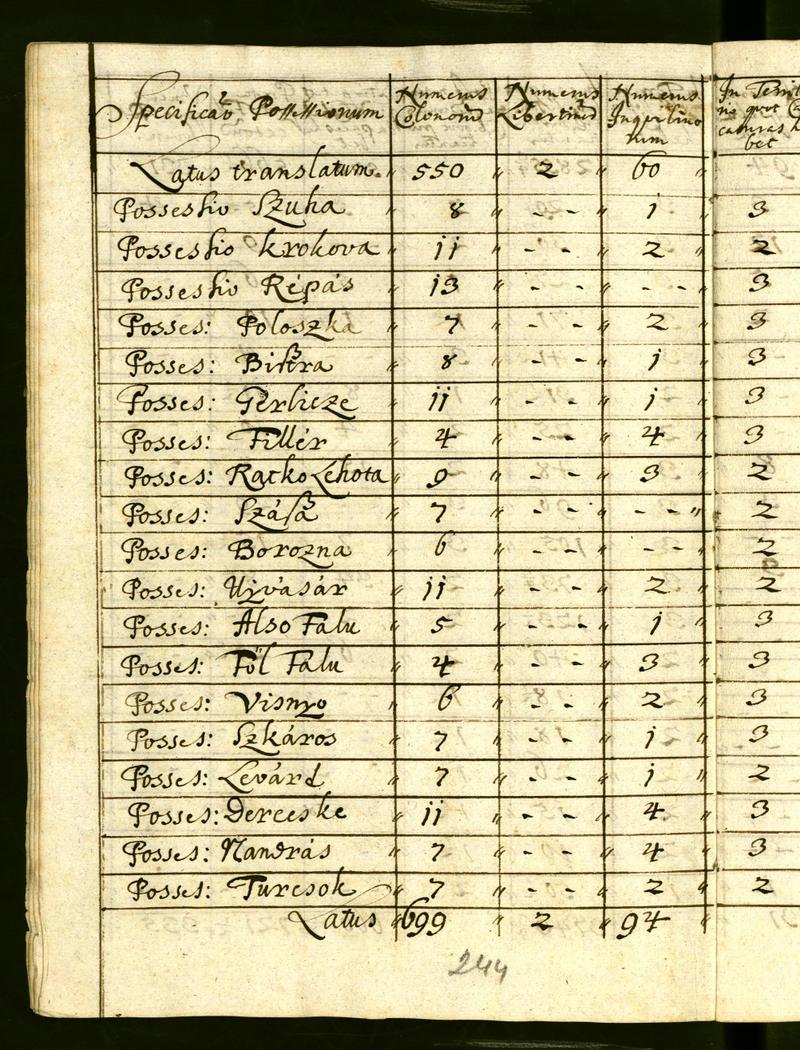 Specificao Possessionum Numerus Colonorū Numerus Libertinorū Numerus Inquilino rum In Territ
Latus translatum. 550 2 60
Possessio Szuha 8 - - 1 3
Possessio Krokova 11 - - 2 2
Possessio Répás 13 - - - - 3
Posses: Poloszka 7 - - 2 3
Posses: Bistra 8 - - 1 3
Posses: Gerlicze 11 - - 1 3
Posses: Fillér 4 - - 4 3
Posses: Racko Lehota 9 - - 3 2
Posses: Szása 7 - - - - 2
Posses: Borozna 6 - - - - 2
Posses: Ujvasár 11 - - 2 2
Posses: Also Falu 5 - - 1 3
Posses: Föl Falu 4 - - 3 3
Posses: Visnyo 6 - - 2 3
Posses: Szkáros 7 - - 1 3
Posses: Levárd 7 - - 1 2
Posses: Derecske 11 - - 4 3
Posses: Nandrás 7 - - 4 3
Posses: Turcsok 7 - - 2 2
Latus 699 2 94
244